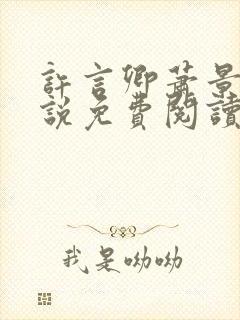 許言卿蕭景
說免費閱讀
我是呦呦